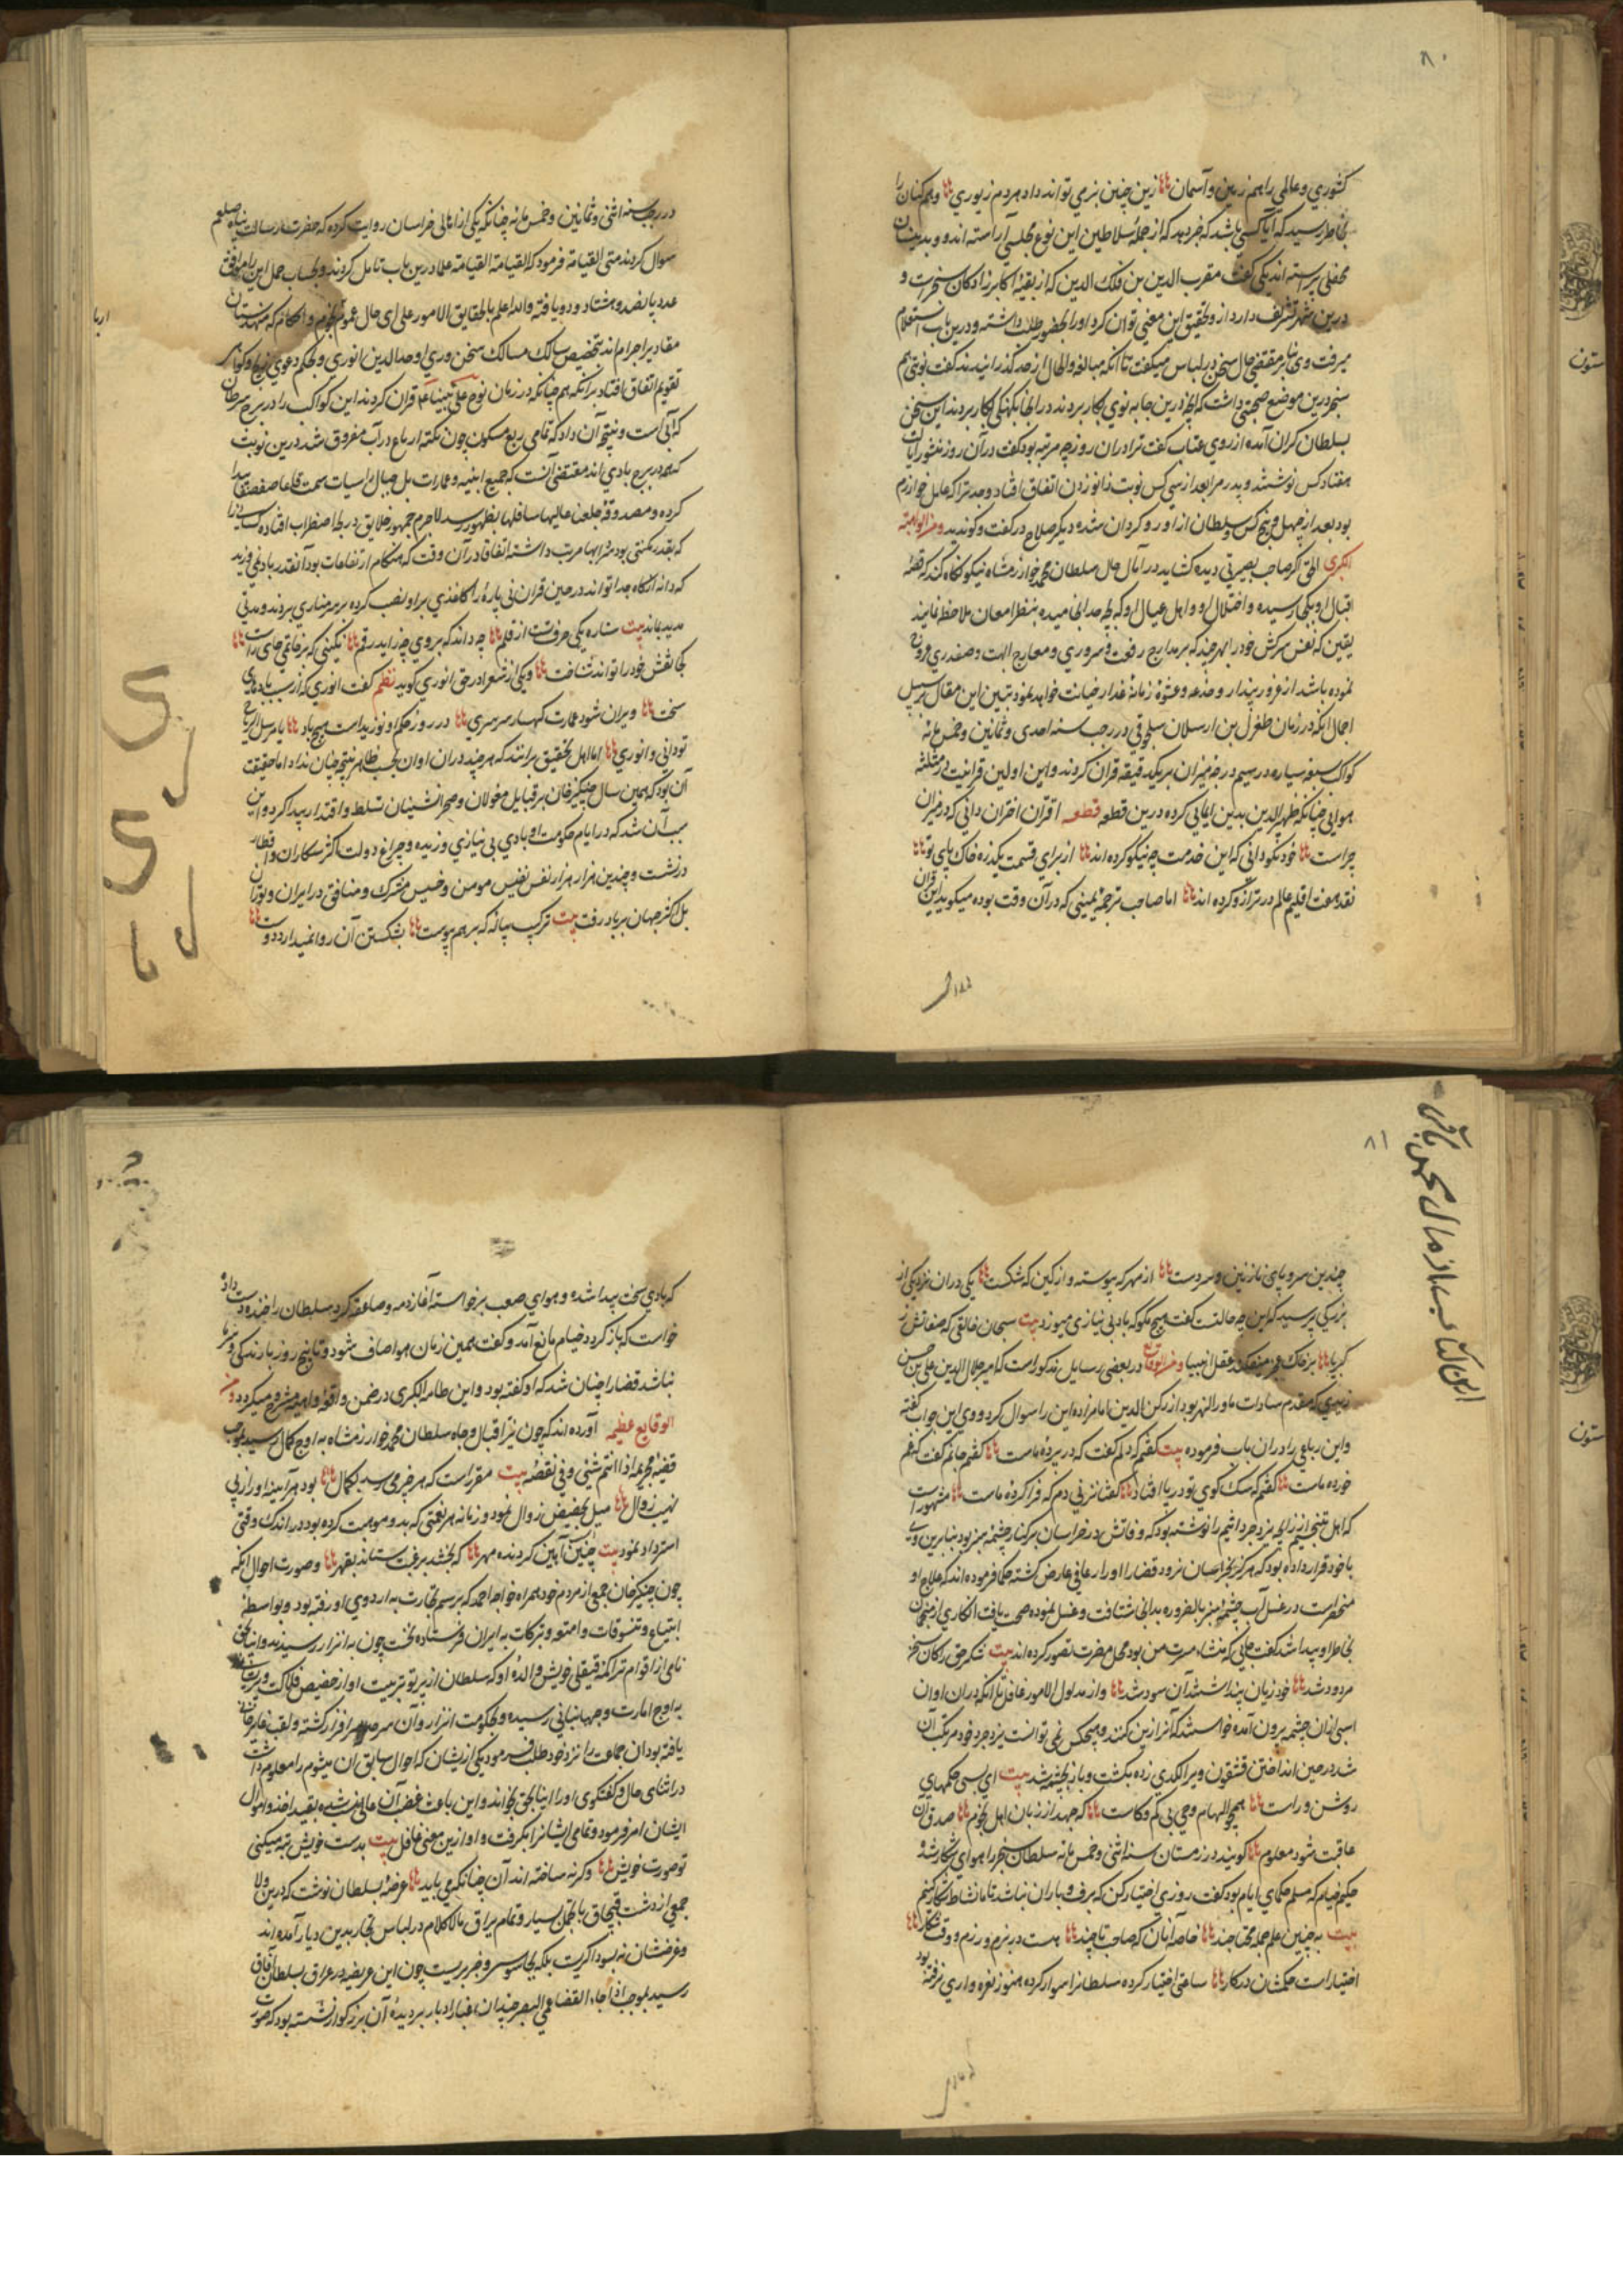 ۸۰
کشوری و عالمی را هم زمین و آسمان زین چنین بزمی تواند داد هر دم زیوری و هم کنان را
بخاطر رسید که آیا کسی باشد که خبر دهد که از جملهٔ سلاطین این نوع مجلسی آراسته اند و بدینسان
محفلی پیراسته اند یکی گفت مقرب الدین بن فلک الدین که از بقیهٔ اکابرزادکان سنجرست و
درین شهر تشریف دارد از وتحقیق این معنی توان کرد او را بحضور طلب داشته و درین باب استعلام
میرفت وی بنابر مقتضی حال سخن در لباس میکفت تا آنکه مبالغه و الحاح از حد گذرانیدند گفت نوبتی هم
سنجر درین موضع صحبتی داشت که انچه درین جا به نوی بکار بردند در انجا بکهنکی بکار بردند این سخن
بسلطان گران آمده از روی عتاب گفت ترا در ان روز چه مرتبه بود گفت در آن روز منشور ایالت
هفتاد کس نوشتند و پدر مرا بعد از سی کس نوبت زانو زدن اتفاق افتاد و جد ترا که عامل خوارزم
بود بعد از چهل و پنج کس سلطان از او رو گردان شده دیگر صلاح در گفت و گو ندید و من الواهبة
الکبری الحق اگر صاحب بصیرتی دیده گشاید در آمال حال سلطان محمد خوارزمشاه نیکو نگاه کند که قصهٔ
اقبال او بکجا رسیده و اختلال او و اهل عیال او که بچه حد انجامیده بنظر امعان ملاحظ نمایند
یقین که نفس سرکش خود را بهر چند که بر مدارج رفعت و سروری و معارج ابهت و صفدری عروج
نموده باشد از غرور پندار و خدعه و عشوهٔ زمانهٔ غدار صیانت خواهد نمود تبیین این مقال بر سبیل
اجمال انکه در زمان طغرل بن ارسلان سلجوقی در رجب سنه احدی و ثمانین و خمس مائه
کواکب سبعه سیاره در سیم درجهٔ میزان بر یکدقیقه قران کردند و این اولین قرانیست در مثلثهٔ
هوایی چنانکه ظهیر الدین بدین ایمایی کرده درین قطعه قطعه اقتران اختران دانی که در میزان
چراست خود نکو دانی که این خدمت چه نیکو کرده اند از برای قسمت یکذره خاک پای تو
نقد هفت اقلیم عالم در ترازو کرده اند اما صاحب ترجمهٔ یمینی که در آن وقت بوده میکوید این قران
در رجب سنه اثنی و ثمانین و خمس مائه چنانکه یکی از اهالی خراسان روایت کرده که حضرت رسالت پناه صلعم
سوال کردند متی القیامة فرمود که القیامة القیامة علما درین باب تامل کردند و بحساب جمل این را موافق
عدد پانصد و هشتاد و دو یافته والله اعلم بالحقایق الامور علی ای حال عموم نجوم و احکام که مهندسان
مقادیر اجرام اند بتخصیص سالک مسالک سخن وری اوحد الدین انوری و بحکم دعوی زیج و کواکب
تقویم اتفاق افتاد برانکه هم چنانکه در زمان نوح علی نبینا ع م قران کردند این کواکب را در برج سرطان
که آبی است و نتیجه آن داد که تمامی ربع مسکون چون نکته ارباع در آب مفروق شد درین نوبت
که همه در برج بادی اند مقتضی آنست که جمیع ابنیه و عمارات بل جبال راسیات سمت قاعا صفصفا پیدا
کرده و مصدوقهٔ جعلنا عالیها سافلها بظهور رسد لاجرم جمهور خلایق در بط اضطراب افتاده کسانیرا
که بقدر مکنتی بود سردابها مرتب داشته اتفاقا در آن وقت که هنکام ارتفاعات بود آنقدر باد نمی وزید
که دانه از کاه جدا تواند در حین قران نی پارهٔ را کاغذی بر او نصب کرده بر سر مناری بردند و مدتی
مدید بماند بیت ستاره یکی حرف تست از قلم چه داند که بروی چه راند رقم نکینی که بر خاتمی جای راست
کجا نقش خود را تواند شناخت و یکی از شعرا در حق انوری گوید نظم گفت انوری که از سبب بادهای
سخت ویران شود عمارت کهسار سر سری در روز حکم او نوزیداست هیچ باد یا مرسل الریاح
تو دانی و انوری اما اهل تحقیق برانند که هر چند در ان اوان بحسب ظاهر نتیجه چنان نداد اما حقیقت
آن بود که همین سال چنکیز خان بر قبایل مغولان و صحرانشینان تسلط و اقتدار پیدا کرد و این
سبب آن شد که در ایام حکومت او بادی بی نیازی وزیده و چراغ دولت اکثر سکاران و اقطار
در نشست و چندین هزار هزار نفس نفیس مومن و خسیس مشرک و منافق در ایران و توران
بل اکثر جهان بر باد رفت بیت ترکیب پیاله که بر هم پیوست بشکستن آن روا نمیدارد دوست
۸۱
این کتاب از مال محمد باقر
چندین سر و پای نازنین و سر و دست از مهر که پیوسته و از کین که شکست یکی در ان نزدیکی از
بزرکی پرسید که این چه حالتست گفت هیچ مگو که باد بی نیازی میوزد بیت سبحان خالقی که صفاتش ز
کبریا بر خاک عجز میفکند عقل انبیا و من الوقایع در بعضی رسایل مذکور است که امیر جلال الدین علی بن حسن
زیدی که مقدم سادات ماوراء النهر بود از رکن الدین امام زاده این را سوال کرد و وی این جواب گفته
و این رباعی را در ان باب فرموده بیت گفتم که دلم گفت که در پردهٔ ماست گفتم جانم گفت که غم
خوردهٔ ماست گفتم که سک کوی تو در پا افتاد گفتا نزنی دم که فرا کردهٔ ماست مشهور است
که اهل تنجیم از زایچهٔ یزدجرد اثیم را نوشته بود که وفاتش در خراسان بر کنار چشمهٔ سبز بود بنابرین وی
با خود قرار داده بود که هرگز بخراسان نرود قضا را او را رعافی عارض گشته حکما فرموده اند که علاج او
منحصر است در غسل آب چشمهٔ سبز بالضروره بدانجا شتافت و غسل نموده صحت یافت انکاری از منجمان
بخاطر او پیدا شد گفت جایی که منشاء مسرت من بود محل مضرت تصور کرده اند بیت شکر حق را کان سخن
مردود شد خود زیان پنداشتند آن سود شد و از مدلول الامور غافل تا آنکه در ان اوان
اسبی از ان چشمه بیرون آمده خواستند که آنرا زین کنند و هیچکس نمی توانست یزدجرد خود مرتکب آن
شد در حین انداختن قشقون ویرا لکدی زده بکشت و باز بچشمه شد بیت ای بسی حکمهای
روشن و راست همچو الهام و وحی بی کم و کاست که جهد از زبان اهل نجوم صدق آن
عاقبت شود معلوم گویند در زمستان سنه اثنی و خمس مائه سلطان سنجر را هوای شکار شد
حکیم خیام که مسلم حکمای ایام بود گفت روزی اختیار کن که برف و باران نباشد تا ما نشاط شکار کنیم
بیت به چنین علم جمله محتاجند خاصه آنان که صاحب تاجند هست در بزم و رزم و وقت شکار
اختیارات حکمشان در کار ساعتی اختیار کرده سلطانرا سوار کرده هنوز نعره واری نرفته بود
که بادی سخت پیدا شده و هوای صعب برخواسته آغاز دمه و صاعقه کرد سلطان را خنده دست داد
خواست که باز گردد خیام مانع آمد و گفت همین زمان هوا صاف شود و تا پنج روز بارندگی و سرما
نباشد قضا را چنان شد که او گفته بود و این طامة الکبری در ضمن واقعهٔ واهمه مشروح میکردد و من
الوقایع عظیمه آورده اند که چون نیّر اقبال و جاه سلطان محمد خوارزمشاه به اوج کمال رسید بموجب
قضیهٔ کریمه اذا تمّ شئی وفی نقصه بیت مقرر است که هر چیز می رسد بکمال بود هر آیینه او را ز پی
نهیب زوال میل بحضیض زوال نمود و زمانه هر نعمتی که بدو موهبت کرده بود در اندک وقتی
استرداد نمود بیت چنین است آیین گردنده مهر که بخشد برغبت ستاند بقهر و صورت احوال انکه
چون چنکیز خان جمعی از مردم خود همراه خواجه احمد که برسم تجارت به اردوی او رفته بود و بواسطهٔ
ابتیاع و تنسوقات و امتعه و تبرکات به ایران فرستاده نخست چون به انزار رسیدند و اینالجق
نامی از اقوام تراکمه قیقلی خویش والدهٔ او که سلطان از پرتو تربیت او از حضیض فلاکت
به اوج امارت و جهانبانی رسیده و بحکومت انزار و آن سرحد سرافراز کشته و لقب غایر خان
یافته بود ان جماعت را نزد خود طلب فرمود یکی از یشان که احوال سابق ان میشوم را معلوم داشت
در اثنای حال و گفتگوی او را اینالجق بخواند و این باعث غضب آن عالی نسب شده بقید اخذ و اموال
ایشان امر فرمود و تمامی ایشانرا بکرفت و او از ین معنی غافل بیت بدست خویش تبه میکنی
تو صورت خویش وکرنه ساخته اند آن چنانکه می باید عرضهٔ بسلطان نوشت که درین ولا
جمعی از دشت قبچاق با تجمل بسیار و تمام یراق مالاکلام در لباس تجار بدین دیار آمده اند
و غرضشان نه بسوداگریست بلکه بجاسوسی و خبر بریست چون این عریضه در عراق بسلطان آفاق
رسید بموجب اذا جاء القضا عمی البصر چندان غبار ادبار بر دیدهٔ آن بزرگوار نشسته بود که صورت